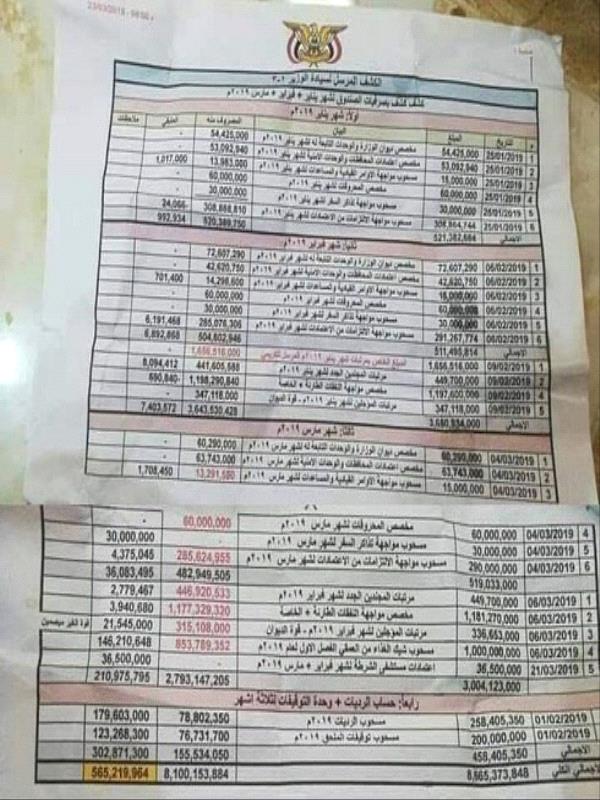 23/03/2019
الكشف المرسل لسيادة الوزير ٢-٣
كشف بصرفيات الصندوق لشهر يناير + فبراير + مارس ٢٠١٩م
أولاً: شهر يناير ٢٠١٩م
م التاريخ المبلغ البيان المصروف منه المتبقي ملاحظات
1 25/01/2019 54,425,000 مخصص ديوان الوزارة والوحدات التابعة له لشهر يناير ٢٠١٩م 54,425,000 -
2 25/01/2019 53,092,940 مخصص اعتمادات المحافظات والوحدات الامنية لشهر يناير ٢٠١٩م 53,092,940 -
3 25/01/2019 15,000,000 مسحوب مواجهة الأوامر القيادية والمساعدات لشهر يناير ٢٠١٩م 13,983,000 1,017,000
4 25/01/2019 60,000,000 مخصص المحروقات لشهر يناير ٢٠١٩م 60,000,000 -
5 25/01/2019 30,000,000 مسحوب مواجهة تذاكر السفر لشهر يناير ٢٠١٩م 30,000,000 -
6 25/01/2019 308,864,744 مسحوب مواجهة الالتزامات من الاعتمادات لشهر يناير ٢٠١٩م 308,888,810 24,066-
الاجمالي 521,382,684 520,389,750 992,934
ثانياً: شهر فبراير ٢٠١٩م
1 06/02/2019 72,607,290 مخصص ديوان الوزارة والوحدات التابعة له لشهر فبراير ٢٠١٩م 72,607,290 -
2 06/02/2019 42,620,750 مخصص اعتمادات المحافظات والوحدات الامنية لشهر فبراير ٢٠١٩م 42,620,750 -
3 06/02/2019 15,000,000 مسحوب مواجهة الأوامر القيادية والمساعدات لشهر فبراير ٢٠١٩م 14,298,600 701,400
4 06/02/2019 60,000,000 مخصص المحروقات لشهر فبراير ٢٠١٩م 60,000,000 -
5 06/02/2019 30,000,000 مسحوب مواجهة تذاكر السفر لشهر فبراير ٢٠١٩م 30,000,000 -
6 06/02/2019 291,267,774 مسحوب مواجهة الالتزامات من الاعتمادات لشهر فبراير ٢٠١٩م 285,076,306 6,191,468
الاجمالي 511,495,814 504,602,946 6,892,868
1 09/02/2019 1,656,516,000 المبلغ الخاص بمرتبات شهر يناير ٢٠١٩م المرسل 1,656,516,000 -
2 09/02/2019 449,700,000 مرتبات المجندين الجدد لشهر يناير ٢٠١٩م 441,605,588 8,094,412
4 09/02/2019 1,197,600,000 مخصص مواجهة النفقات الطارئة + الخاصة 1,198,290,840 690,840-
5 09/02/2019 347,118,000 مرتبات المؤجلين لشهر يناير ٢٠١٩م - قوة الديوان 347,118,000 -
الاجمالي 3,650,934,000 3,643,530,428 7,403,572
ثالثاً: شهر مارس ٢٠١٩م
1 04/03/2019 60,290,000 مخصص ديوان الوزارة والوحدات التابعة له لشهر مارس ٢٠١٩م 60,290,000 -
2 04/03/2019 63,743,000 مخصص اعتمادات المحافظات والوحدات الامنية لشهر مارس ٢٠١٩م 63,743,000 -
3 04/03/2019 15,000,000 مسحوب مواجهة الأوامر القيادية والمساعدات لشهر مارس ٢٠١٩م 13,291,550 1,708,450
4 04/03/2019 60,000,000 مخصص المحروقات لشهر مارس ٢٠١٩م 60,000,000 -
5 04/03/2019 30,000,000 مسحوب مواجهة تذاكر السفر لشهر مارس ٢٠١٩م - 30,000,000
6 04/03/2019 290,000,000 مسحوب مواجهة الالتزامات من الاعتمادات لشهر مارس ٢٠١٩م 285,624,955 4,375,045
519,033,000 482,949,505 36,083,495
1 06/03/2019 449,700,000 مرتبات المجندين الجدد لشهر فبراير ٢٠١٩م 446,920,533 2,779,467
2 06/03/2019 1,181,270,000 مخصص مواجهة النفقات الطارئة + الخاصة 1,177,329,320 3,940,680
3 06/03/2019 336,653,000 مرتبات المؤجلين لشهر فبراير ٢٠١٩م - قوة الديوان 315,108,000 21,545,000 قوة الغير مبصمين
4 06/03/2019 1,000,000,000 مسحوب شيك الغذاء من المالي الفصل الاول لعام ٢٠١٩م 853,789,352 146,210,648
5 21/03/2019 36,500,000 اعتمادات مستشفى الشرطة لشهر فبراير + مارس ٢٠١٩م - 36,500,000
3,004,123,000 2,793,147,205 210,975,795
رابعاً: حساب الرديات + وحدة التوقيفات لثلاثة اشهر
01/02/2019 258,405,350 مسحوب الرديات ٢٠١٩م 78,802,350 179,603,000
01/02/2019 200,000,000 مسحوب توقيفات الملحق ٢٠١٩م 76,731,700 123,268,300
الاجمالي 458,405,350 155,534,050 302,871,300
الاجمالي الكلي 8,665,373,848 8,100,153,884 565,219,964